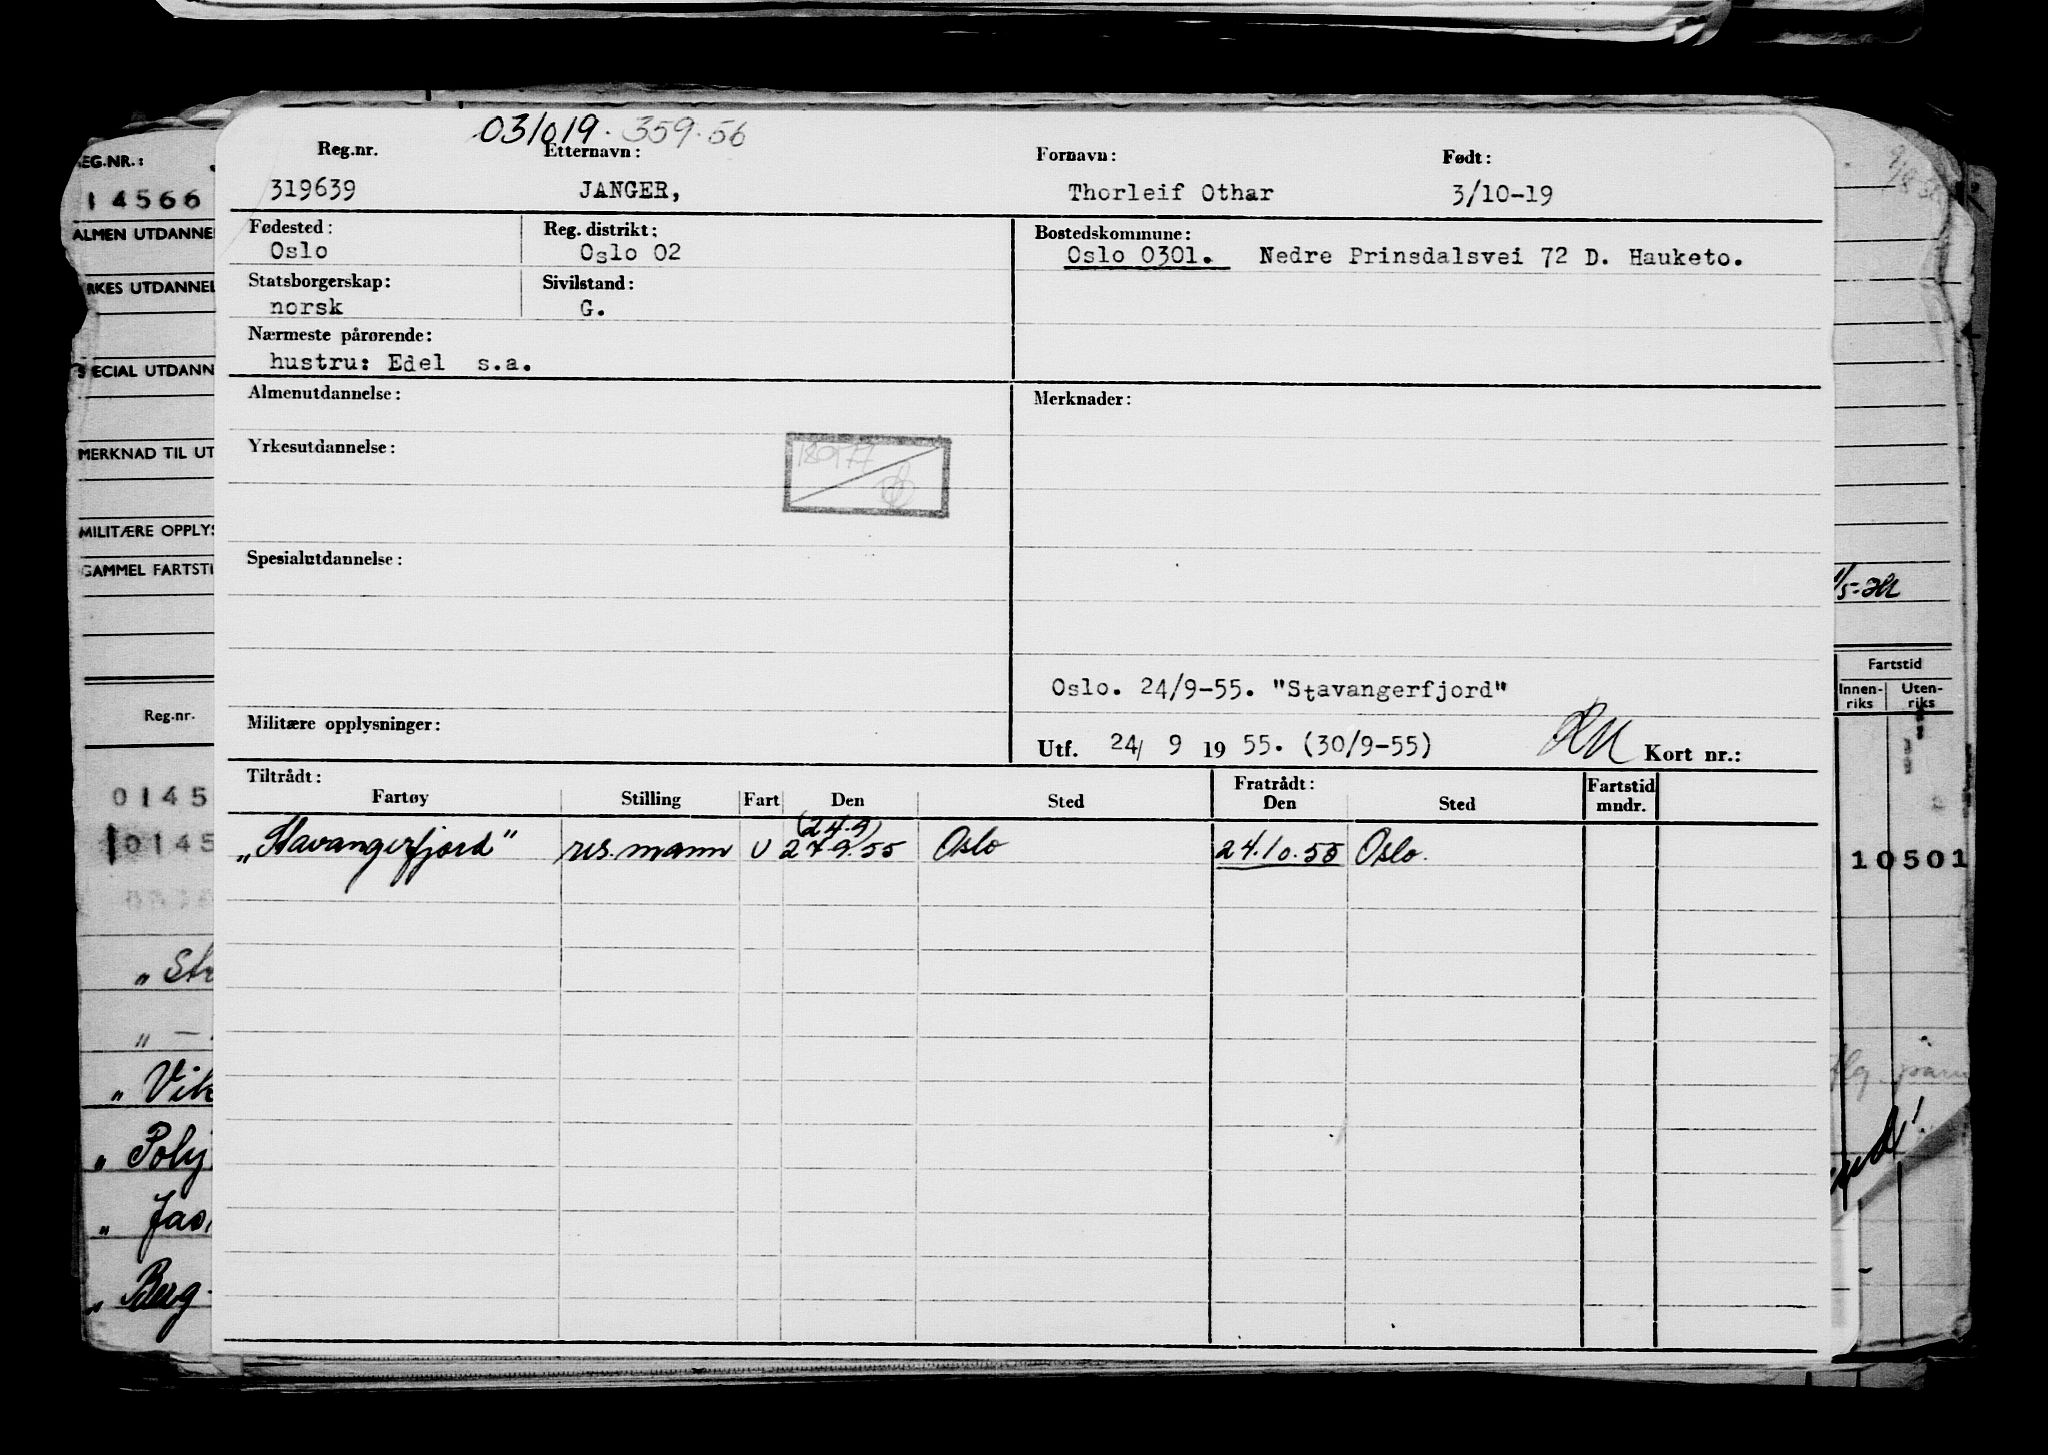 031019. 359.56
Reg.nr. Etternavn: Fornavn: Født:
319639 JANGER, Thorleif Othar 3/10-19
Fødested: Reg. distrikt: Bostedskommune:
Oslo Oslo 02 Oslo 0301. Nedre Prinsdalsvei 72 D. Hauketo.
Statsborgerskap: Sivilstand:
norsk G.
Nærmeste pårørende:
hustru: Edel s.a.
Almenutdannelse: Merknader:
Yrkesutdannelse:
Spesialutdannelse:
Oslo. 24/9-55. "Stavangerfjord"
Militære opplysninger:
Utf. 24/ 9 19 55. (30/9-55) Kort nr.:
Tiltrådt: Fratrådt: Fartstid
Fartøy Stilling Fart Den Sted Den Sted mndr.
(24.9)
„Stavangerfjord" res.mann U 27.9.55 Oslo 24.10.55 Oslo.
EG.NR.:
14566
ALMEN UTDANNE
RKES UTDANNEL
SPECIAL UTDANN
MERKNAD TIL UT
MILITÆRE OPPLYS
GAMMEL FARTSTI
Reg.nr.
0145
0145
„ St
„ —
„ Vik
„ Poly
„ Jas
„ Berg
Fartstid
Innen- Uten-
riks riks
10501